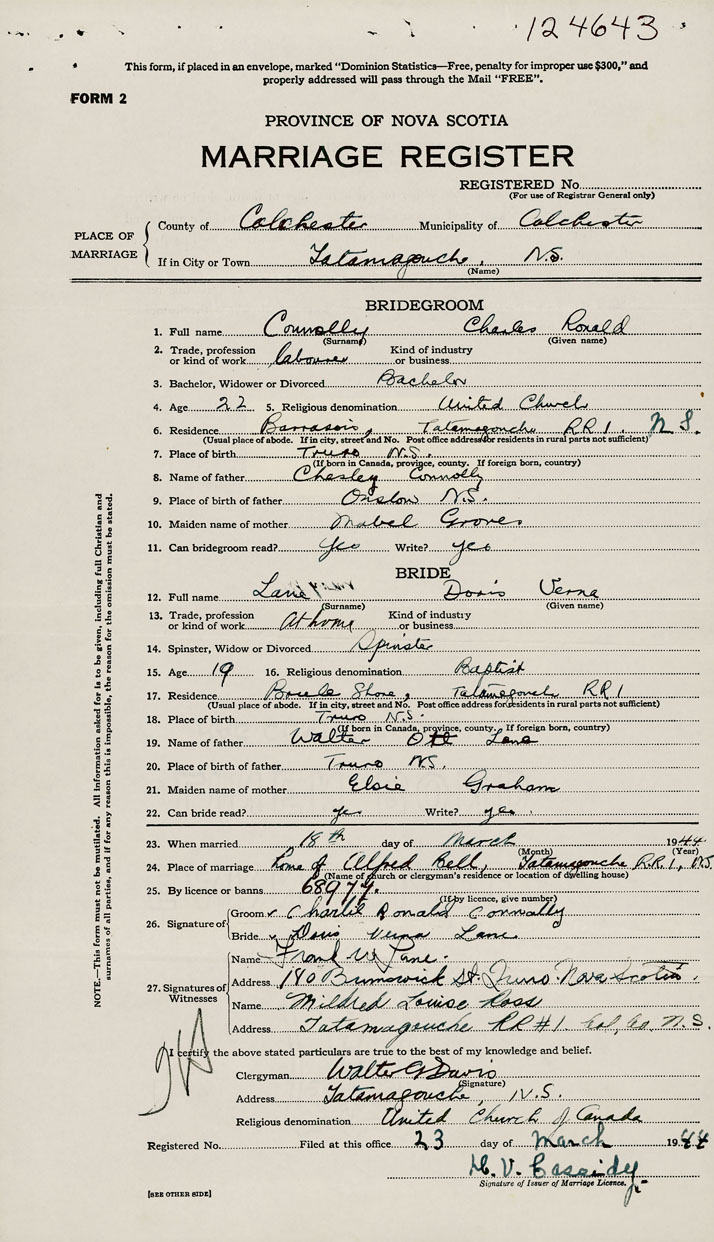 124643
This form, if placed in an envelope, marked "Dominion Statistics—Free, penalty for improper use $300," and
properly addressed will pass through the Mail "FREE".
FORM 2
PROVINCE OF NOVA SCOTIA
MARRIAGE REGISTER
REGISTERED No.
(For use of Registrar General only)
PLACE OF MARRIAGE
County of Colchester Municipality of Colchester
If in City or Town Tatamagouche, N.S.
(Name)
BRIDEGROOM
1. Full name Connolly Charles Ronald
(Surname) (Given name)
2. Trade, profession or kind of work labourer Kind of industry or business
3. Bachelor, Widower or Divorced Bachelor
4. Age 22 5. Religious denomination United Church
6. Residence Tatamagouche RR1. N.S.
(Usual place of abode. If in city, street and No. Post office address for residents in rural parts not sufficient)
7. Place of birth Truro N.S.
(If born in Canada, province, county. If foreign born, country)
8. Name of father Chesley Connolly
9. Place of birth of father Onslow N.S.
10. Maiden name of mother Mabel Groves
11. Can bridegroom read? yes Write? yes
BRIDE
12. Full name Lane Doris Verna
(Surname) (Given name)
13. Trade, profession or kind of work At home Kind of industry or business
14. Spinster, Widow or Divorced Spinster
15. Age 19 16. Religious denomination Baptist
17. Residence Brule Shore, Tatamagouche RR1
(Usual place of abode. If in city, street and No. Post office address for residents in rural parts not sufficient)
18. Place of birth Truro N.S.
(If born in Canada, province, county. If foreign born, country)
19. Name of father Walter Lane
20. Place of birth of father Truro N.S.
21. Maiden name of mother Elsie Graham
22. Can bride read? yes Write? yes
23. When married 18th day of March 1944
(Month) (Year)
24. Place of marriage Home of Alfred Bell, Tatamagouche R.R.1, N.S.
(Name of church or clergyman's residence or location of dwelling house)
25. By licence or banns 68974.
(If by licence, give number)
26. Signature of
Groom Charlie Ronald Connolly
Bride Doris Verna Lane
27. Signatures of Witnesses
Name Frank W. Lane.
Address 140 Brunswick St. Truro. Nova Scotia.
Name Mildred Louise Ross
Address Tatamagouche RR#1. Col. Co. N.S.
I certify the above stated particulars are true to the best of my knowledge and belief.
Clergyman Walter G Davis
(Signature)
Address Tatamagouche, N.S.
Religious denomination United Church of Canada
Registered No. Filed at this office 23 day of March 1944
H. V. Cassidy
Signature of Issuer of Marriage Licence.
[SEE OTHER SIDE]
NOTE.—This form must not be mutilated. All information asked for is to be given, including full Christian and
surnames of all parties, and if for any reason this is impossible, the reason for the omission must be stated.